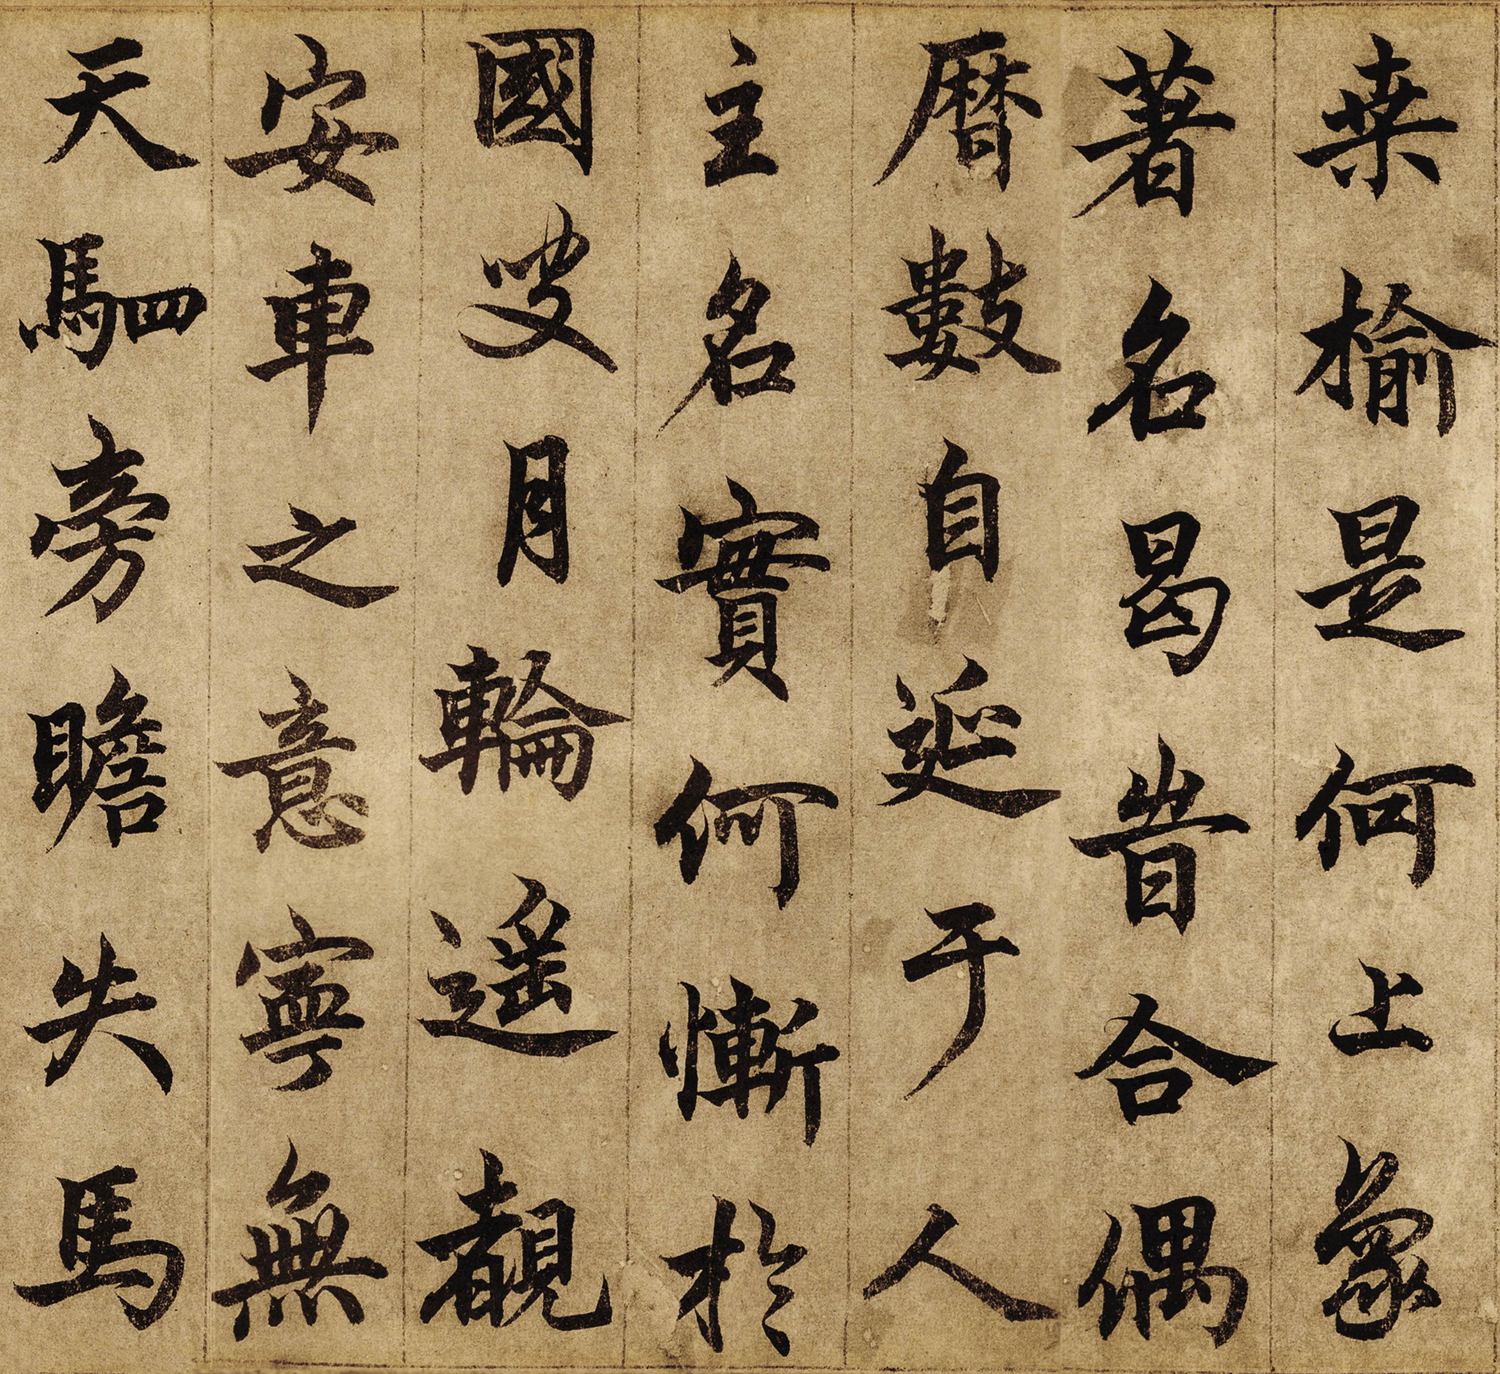 桒榆是何上象
著名曷昔合偶
曆數自延于人
主名實何慚於
國叟月輪遥覩
安車之意寧無
天駟旁瞻失馬